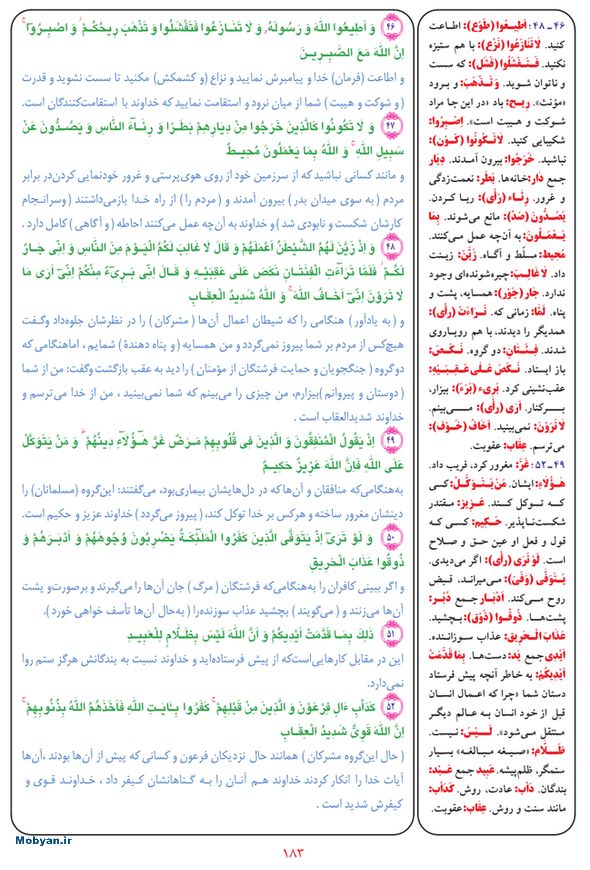 ۴۶ـ۴۸: أَطِيعُوا (طَوْع): اطـاعت
کنید. لَاتَنَازَعُوا (نَزْع): با هم ستیزه
نکنید. فَـتَفْشَلُوا (فَشَل): که سست
و ناتوان شوید. وَتَذْهَبَ: و برود
«مؤنث». رِیـح: باد «در این جا مراد
شـوکت و هیبت است». اِصْبِرُوا:
شکیبایی کنید. لَاتَکُونُوا (کَـوْن):
نباشید. خَرَجُوا: بیرون آمـدند. دِیَار
جمع دَار: خانه‌ها. بَطَر: نعمت‌زدگی
و غرور. رِئـَاء (رَأْی): ریـا کـردن.
یَصُدُّونَ (صَدّ): مانع می‌شوند. بِمَا
یَـعْـمَـلُونَ: به آن‌چه عمل مـی‌کنند.
مُحِیط: مسلّط و آگاه. زَیَّنَ: زیـنت
داد. لَا غَالِبَ: چیره‌شونده‌ای وجود
ندارد. جَار (جَوْر): همسایه، پشت و
پناه. لَمَّا: زمانی که. تَـرَاءَتْ (رَأْی):
همدیگر را دیدند، با هم رویاروی
شدند. فِـئَـتَـان: دو گروه. نَـکَـصَ:
باز ایستاد. نَـکَصَ عَـلَی عَـقِـبَـیْـهِ:
عقب‌نشینی کرد. بَرِیء (بَرَء): بیزار،
بـرکنار. أَرَی (رَأْی): مـــی‌بینم.
لَاتَرَوْنَ: نمی‌بینید. أَخَـافُ (خَـوْف):
می‌ترسم. عِقَاب: عقوبت.
۴۹ـ۵۲: غَرَّ: مغرور کرد، فریب داد.
هَـؤُلَاءِ: ایشان. مَنْ‌یَتَوَکَّـلْ: کسی
کـه تـوکل کـنـد. عَـزِیـز: مقـتدر
شکست‌ناپذیر. حَـکِیم: کسی کـه
قول و فعل او عین حـق و صـلاح
است. لَوْ تَرَی (رَأْی): اگر می‌دیدی.
یَتَوَفَّی (وَفْی): می‌میراند، قـبض
روح می‌کند. أَدْبَار جمع دُبُـر:
پشت‌ها. ذُوقُوا (ذَوْق): بـچشید.
عَذَابَ الْحَرِیق: عذاب سوزاننده.
أَیْدِی جمع یَد: دست‌ها. بِمَا قَدَّمَتْ
أَیْدِیکُمْ: به خاطر آنچه پیش فرستاد
دستان شما «چرا که اعمـال انسان
قبل از خود انسان بـه عـالم دیگـر
منتقل می‌شود». لَـیْـسَ: نیست.
ظَـلَّام: «صـیـغه مبـالغه» بسیار
ستمگر، ظلم‌پیشه. عَبِید جمع عَـبْـد:
بندگان. دَأب: عادت، روش. کَدَأْب:
مانند سنت و روش. عِقَاب: عقوبت.
۴۶ وَ أَطِيعُوا اللّٰهَ وَ رَسُولَهُ, وَ لَا تَنَازَعُوا فَتَفْشَلُوا وَ تَذْهَبَ رِيحُكُمْ ۖ وَ اصْبِرُوٓا ۚ
إِنَّ اللّٰهَ مَعَ الصَّٰبِرِينَ
و اطاعت (فرمان) خدا و پیامبرش نمایید و نزاع (و کشمکش) مکنید تا سست نشوید و قدرت
( و شوکت و هیبت ) شما از میان نرود و استقامت نمایید که خداوند با استقامت‌کنندگان است.
۴۷ وَ لَا تَكُونُوا كَالَّذِينَ خَرَجُوا مِنْ دِيَارِهِمْ بَطَرًا وَ رِئَـآءَ النَّاسِ وَ يَصُدُّونَ عَنْ
سَبِيلِ اللّٰهِ ۚ وَ اللّٰهُ بِمَا يَعْمَلُونَ مُحِيطٌ
و مانند کسانی نباشید که از سرزمین خود از روی هوی‌پرستی و غرور خودنمایی کردن‌در برابر
مردم ( به سوی میدان بدر ) بیرون آمدند و (مردم را ) از راه خدا بازمی‌داشتند (وسرانجام
کارشان شکست و نابودی شد ) و خداوند به آن‌چه عمل می‌کنند احاطه ( و آگاهی ) کامل دارد .
۴۸ وَ إِذْ زَيَّنَ لَهُمُ الشَّيْطَٰنُ أَعْمَٰلَهُمْ وَ قَالَ لَا غَالِبَ لَكُمُ الْيَوْمَ مِنَ النَّاسِ وَ إِنِّى جَارٌ
لَكُمْ ۖ فَلَمَّا تَرَآءَتِ الْفِئَتَانِ نَكَصَ عَلَىٰ عَقِبَيْهِ وَ قَالَ إِنِّى بَرِىٓءٌ مِنْكُمْ إِنِّىٓ أَرَىٰ مَا
لَا تَرَوْنَ إِنِّىٓ أَخَافُ اللّٰهَ ۚ وَ اللّٰهُ شَدِيدُ الْعِقَابِ
و ( به یادآور ) هنگامی را که شیطان اعمال آن‌ها ( مشرکان ) را در نظرشان جلوه‌داد وگفت
هیچ‌کس از مردم بر شما پیروز نمی‌گردد و من همسایه ( و پناه دهندهٔ ) شمایم ، اماهنگامی که
دوگروه ( جنگجویان و حمایت فرشتگان از مؤمنان ) را دید به عقب بازگشت وگفت: من از شما
( دوستان و پیروانم )بیزارم، من چیزی را می‌بینم که شما نمی‌بینید ، من از خدا می‌ترسم و
خداوند شدیدالعقاب است .
۴۹ إِذْ يَقُولُ الْمُنَٰفِقُونَ وَ الَّذِينَ فِى قُلُوبِهِمْ مَرَضٌ غَرَّ هَٰٓؤُلَآءِ دِينُهُمْ ۗ وَ مَنْ يَتَوَكَّلْ
عَلَى اللّٰهِ فَإِنَّ اللّٰهَ عَزِيزٌ حَكِيمٌ
به‌هنگامی‌که منافقان و آن‌ها‌که در دل‌هایشان بیماری‌بود، می‌گفتند: این‌گروه (مسلمانان) را
دینشان مغرور ساخته و هرکس بر خدا توکل کند، ( پیروز می‌گردد ) خداوند عزیز و حکیم است.
۵۰ وَ لَوْ تَرَىٰٓ إِذْ يَتَوَفَّى الَّذِينَ كَفَرُوا الْمَلَٰٓئِكَةُ يَضْرِبُونَ وُجُوهَهُمْ وَ أَدْبَٰرَهُمْ وَ
ذُوقُوا عَذَابَ الْحَرِيقِ
و اگر ببینی کافران را به‌هنگامی‌که فرشتگان ( مرگ ) جان آن‌ها را می‌گیرند و برصورت‌و پشت
آن‌ها می‌زنند و ( می‌گویند ) بچشید عذاب سوزنده‌را ( به‌حال آن‌ها تأسف خواهی خورد ).
۵۱ ذَٰلِكَ بِمَا قَدَّمَتْ أَيْدِيكُمْ وَ أَنَّ اللّٰهَ لَيْسَ بِظَلَّٰمٍ لِلْعَبِيدِ
این در مقابل کارهایی‌است‌که از پیش فرستاده‌اید و خداوند نسبت به بندگانش هرگز ستم روا
نمی‌دارد.
۵۲ كَدَأْبِ ءَالِ فِرْعَوْنَ وَ الَّذِينَ مِنْ قَبْلِهِمْ ۚ كَفَرُوا بِـَٔايَٰتِ اللّٰهِ فَأَخَذَهُمُ اللّٰهُ بِذُنُوبِهِمْ ۗ
إِنَّ اللّٰهَ قَوِىٌّ شَدِيدُ الْعِقَابِ
( حال این‌گروه مشرکان ) همانند حال نزدیکان فرعون و کسانی که پیش از آن‌ها بودند ،آن‌ها
آیات خدا را انکار کردند خداوند هـم آنـان را بـه گـناهانشان کـیفر داد ، خـداونـد قـوی و
کیفرش شدید است .
Mobyan.ir
۱۸۳